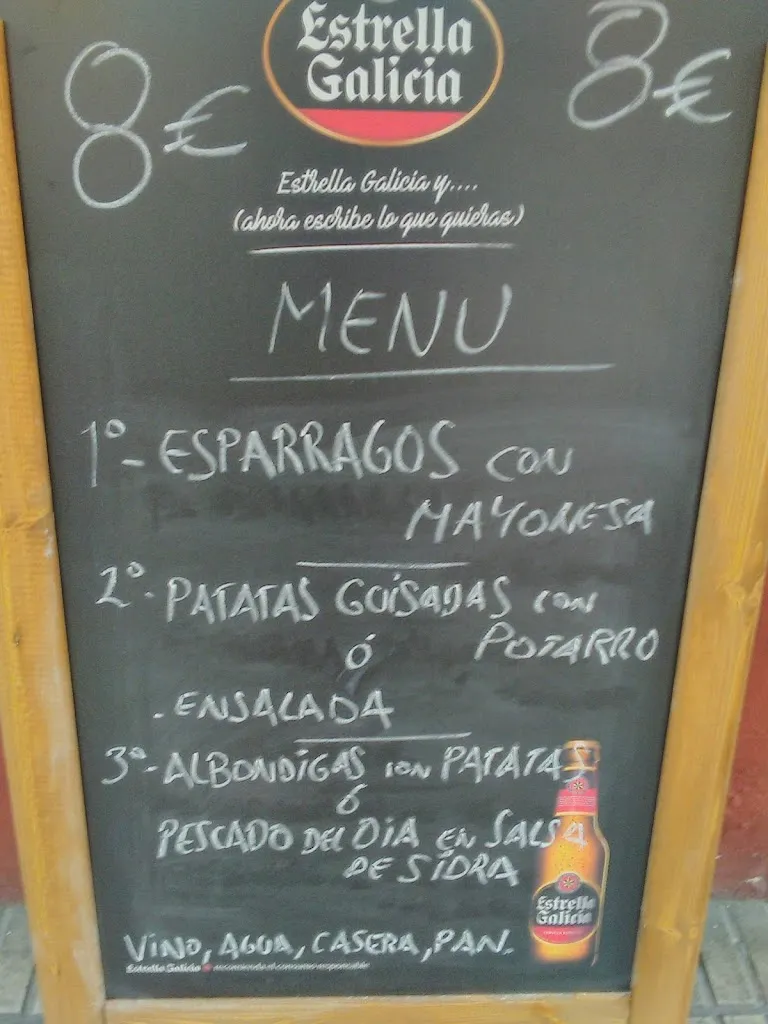 Estrella
Galicia
8€ 8€
Estrella Galicia y....
(ahora escribe lo que quieras)
MENU
1º- ESPARRAGOS CON
MAYONESA
2º- PATATAS GUISADAS CON
POTARRO
Ó
. ENSALADA
3º- ALBONDIGAS CON PATATAS
Ó
PESCADO DEL DIA EN SALSA
DE SIDRA
Estrella
Galicia
VINO, AGUA, CASERA, PAN.
Estrella Galicia recomienda el consumo responsable